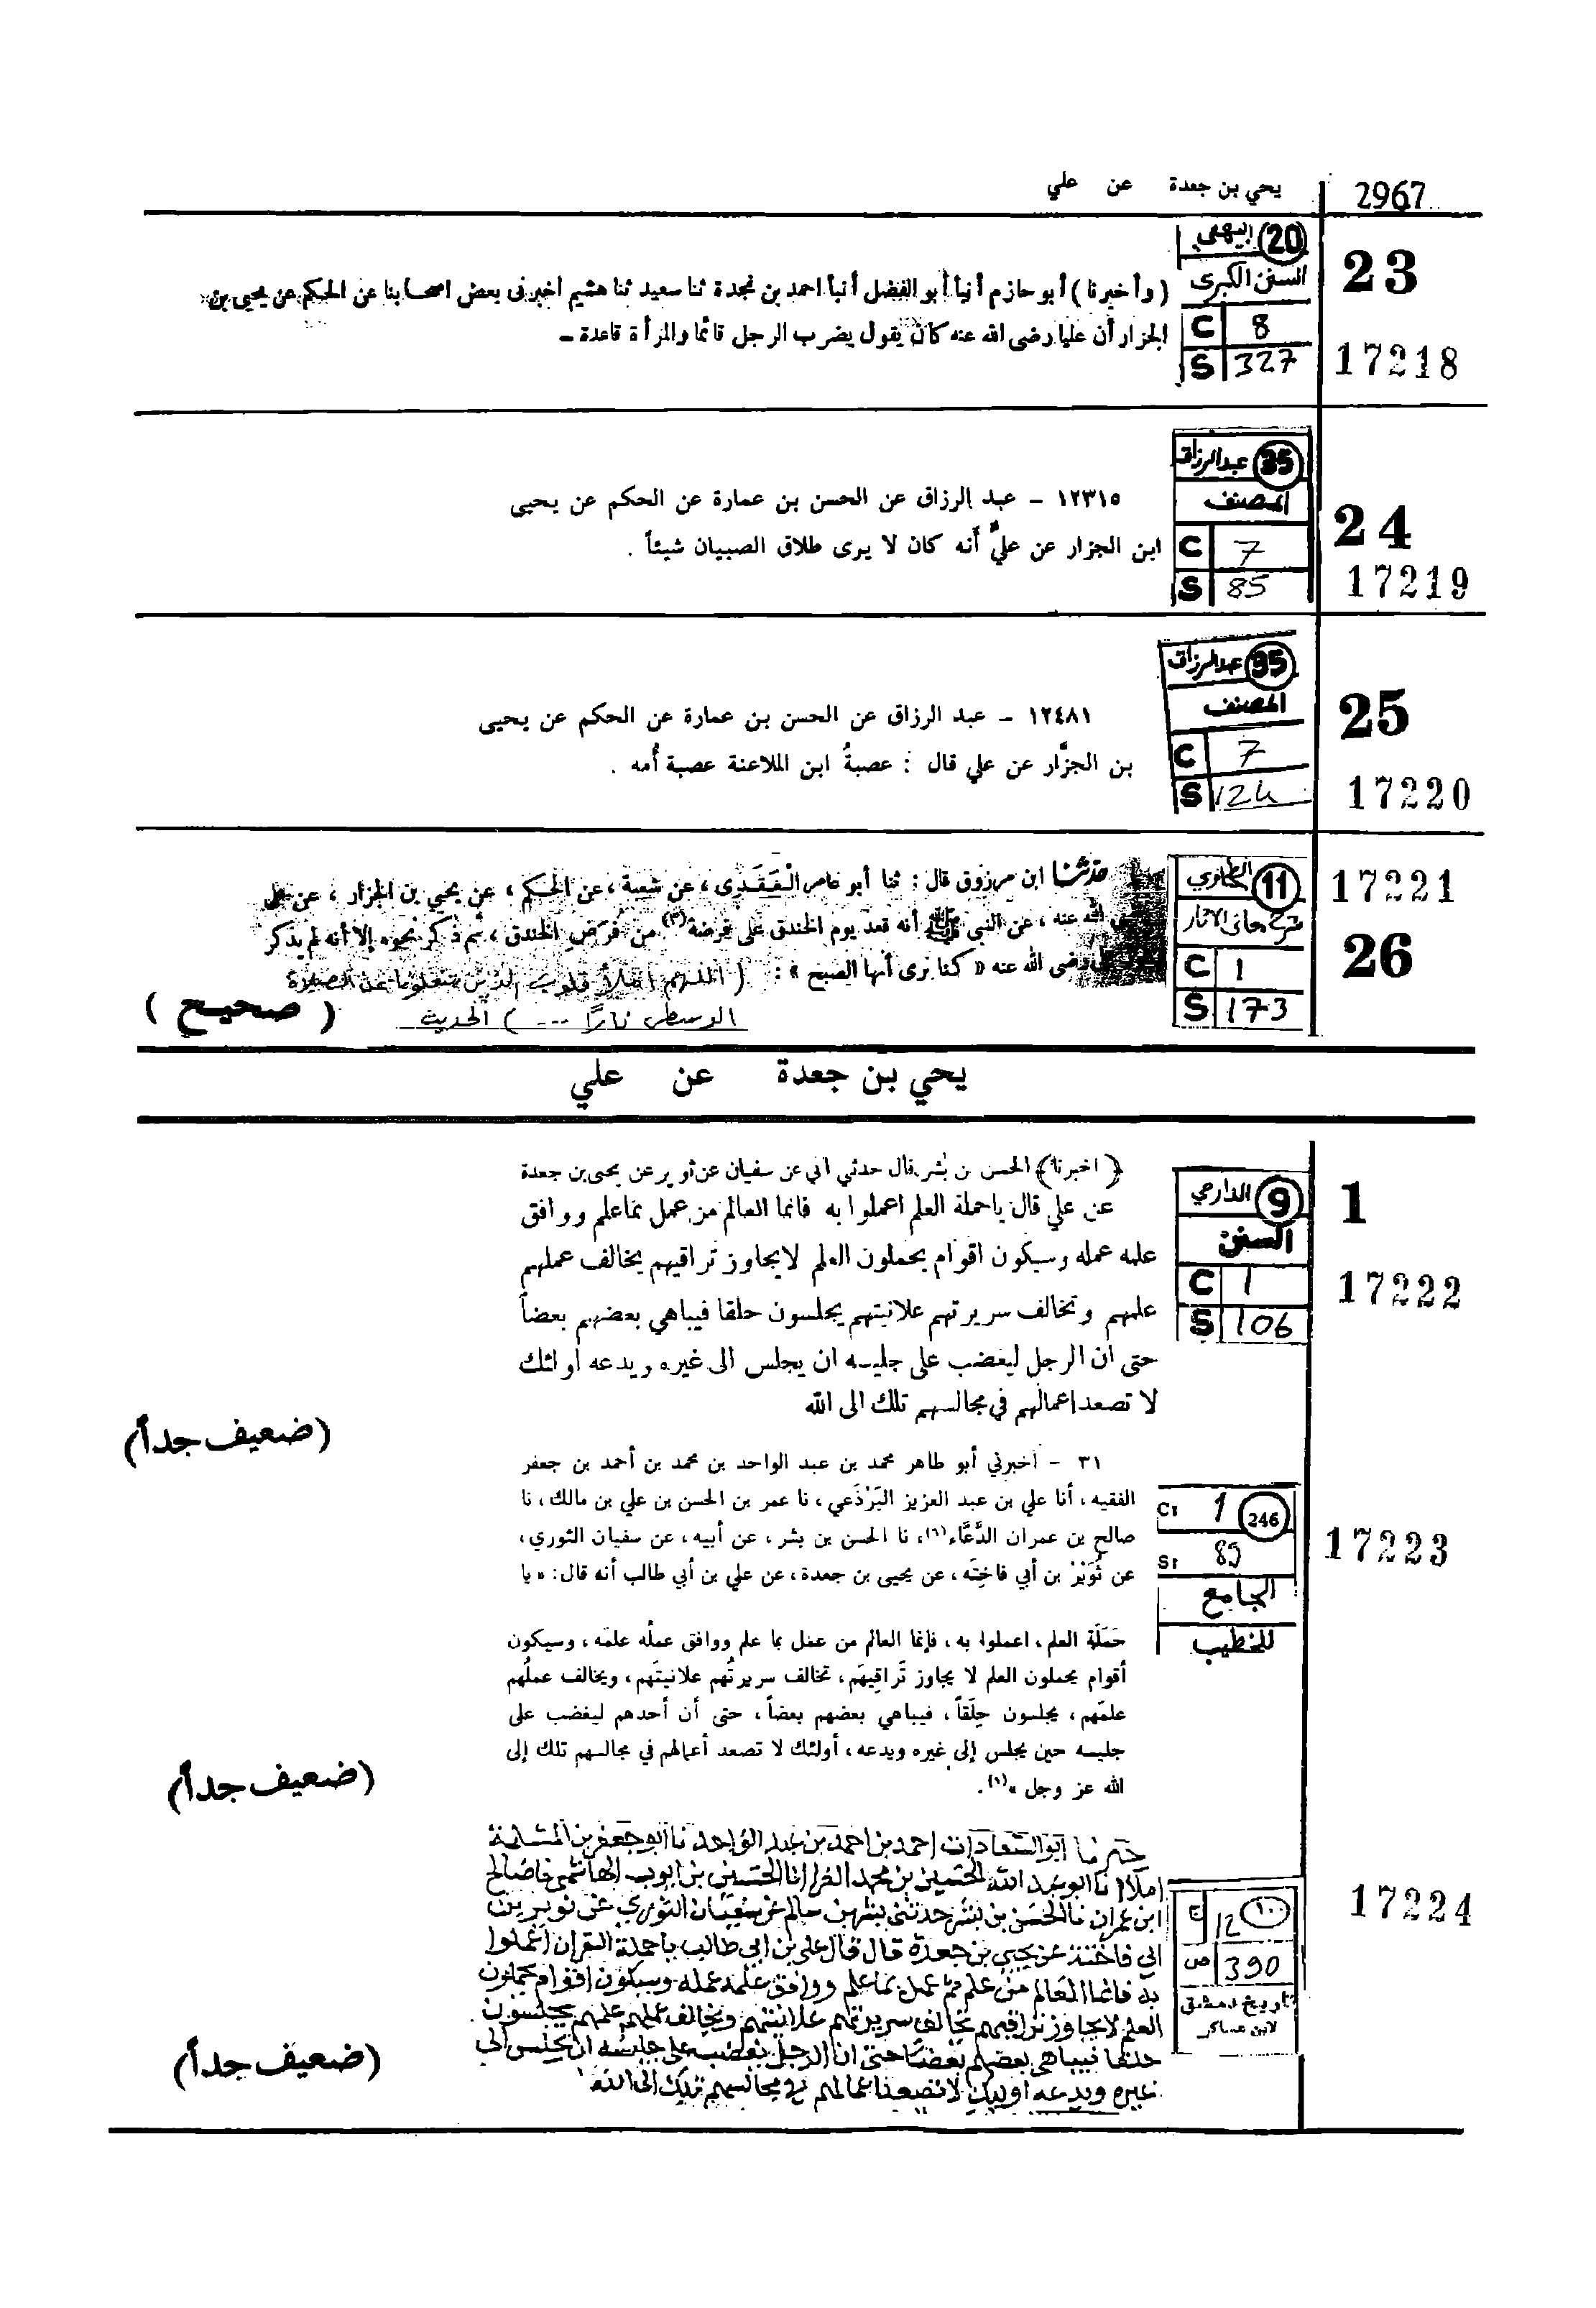 2967
يحي بن جعدة عن علي
23
17218
20 البيهقي
السنن الكبرى
C 8
S 327
(وأخبرنا) أبو حازم أنبأ أبو الفضل أنبأ احمد بن نجدة ثنا سعيد ثنا هشيم أخبرنى بعض اصحابنا عن الحكم عن يحيى بن
الجزار أن عليا رضى الله عنه كان يقول يضرب الرجل قائما والمرأة قاعدة -
24
17219
35 عبدالرزاق
المصنف
C 7
S 85
١٢٣١٥ - عبد الرزاق عن الحسن بن عمارة عن الحكم عن يحيى
ابن الجزار عن علي أنه كان لا يرى طلاق الصبيان شيئاً .
25
17220
35 عبدالرزاق
المصنف
C 7
S 124
١٢٤٨١ - عبد الرزاق عن الحسن بن عمارة عن الحكم عن يحيى
بن الجزَّار عن علي قال : عصبةُ ابن الملاعنة عصبة أُمه .
17221
26
11 الطحاوي
شرح معاني الآثار
C 1
S 173
حدثنا ابن مرزوق قال : ثنا أبو عامر العَقَدِى ، عن شعبة ، عن الحكم ، عن يحيي بن الجزار ، عن على
الله عنه ، عن النبي ﷺ أنه قعد يوم الخندق على فرضة(٣) من فُرَضِ الخندق ، ثم ذكر نحوه إلا أنه لم يذكر
رضى الله عنه « كنا نرى أنها الصبح » : ( اللهم املأ قلوب الذين شغلونا عن الصلاة
الوسطى نارًا ... ) الحديث
( صحيح )
يحي بن جعدة عن علي
1
17222
9 الدارمي
السنن
C 1
S 106
(اخبرنا) الحسن بن بشر قال حدثني ابي عن سفيان عن ثوير عن يحيى بن جعدة
عن علي قال ياحملة العلم اعملوا به فانما العالم من عمل بما علم ووافق
علمه عمله وسيكون اقوام يحملون العلم لايجاوز تراقيهم يخالف عملهم
علمهم وتخالف سريرتهم علانيتهم يجلسون حلقا فيباهي بعضهم بعضاً
حتى ان الرجل ليغضب على جليسه ان يجلس الى غيره ويدعه اولئك
لا تصعد اعمالهم في مجالسهم تلك الى الله
(ضعيف جداً)
17223
C: 1 246
S: 89
الجامع
للخطيب
٣١ - أخبرني أبو طاهر محمد بن عبد الواحد بن محمد بن أحمد بن جعفر
الفقيه ، أنا علي بن عبد العزيز البَرْذَعي ، نا عمر بن الحسن بن علي بن مالك ، نا
صالح بن عمران الدَّعَّاء(٦)، نا الحسن بن بشر ، عن أبيه ، عن سفيان الثوري ،
عن ثُوَيْر بن أبي فاخِتَه ، عن يحيى بن جعدة ، عن علي بن أبي طالب أنه قال : « يا
حَمَلَة العلم ، اعملوا به ، فإنما العالم من عمل بما علم ووافق عملُه علمَه ، وسيكون
أقوام يحملون العلم لا يجاوز تَراقِيهَم ، تخالف سريرتُهم علانيتَهم ، ويخالف عملُهم
علمَهم ، يجلسون حِلَقاً ، فيباهي بعضهم بعضاً ، حتى أن أحدهم ليغضب على
جليسه حين يجلس إلى غيره ويدعه ، أولئك لا تصعد أعمالهم في مجالسهم تلك إلى
الله عز وجل »(١).
(ضعيف جداً)
17224
١٠٠
ج 12
ص 390
تاريخ دمشق
لابن عساكر
خبرنا ابو السعادات احمد بن احمد بن عبد الواحد نا ابو جعفر بن المسلمة
املاء نا ابو عبد الله الحسين بن محمد انا الحسين بن ايوب الهاشمي نا صالح
ابن عمران نا الحسن بن بشر حدثني بشر بن سالم عن سفيان الثوري عن ثوير بن
ابي فاختة عن يحيى بن جعدة قال قال علي بن ابي طالب ياحملة القران اعملوا
به فانما العالم من علم ثم عمل بما علم ووافق علمه عمله وسيكون اقوام يحملون
العلم لا يجاوز تراقيهم تخالف سريرتهم علانيتهم ويخالف عملهم علمهم يجلسون
حلقا فيباهي بعضهم بعضا حتى ان الرجل يغضب على جليسه ان يجلس الى
غيره ويدعه اوليك لا تصعد اعمالهم في مجالسهم تلك الى الله
(ضعيف جداً)